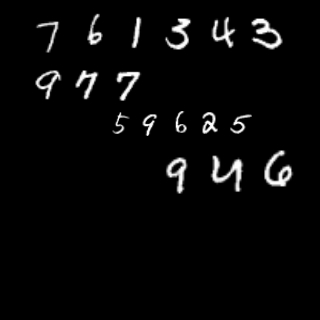 761343
977
59625
946